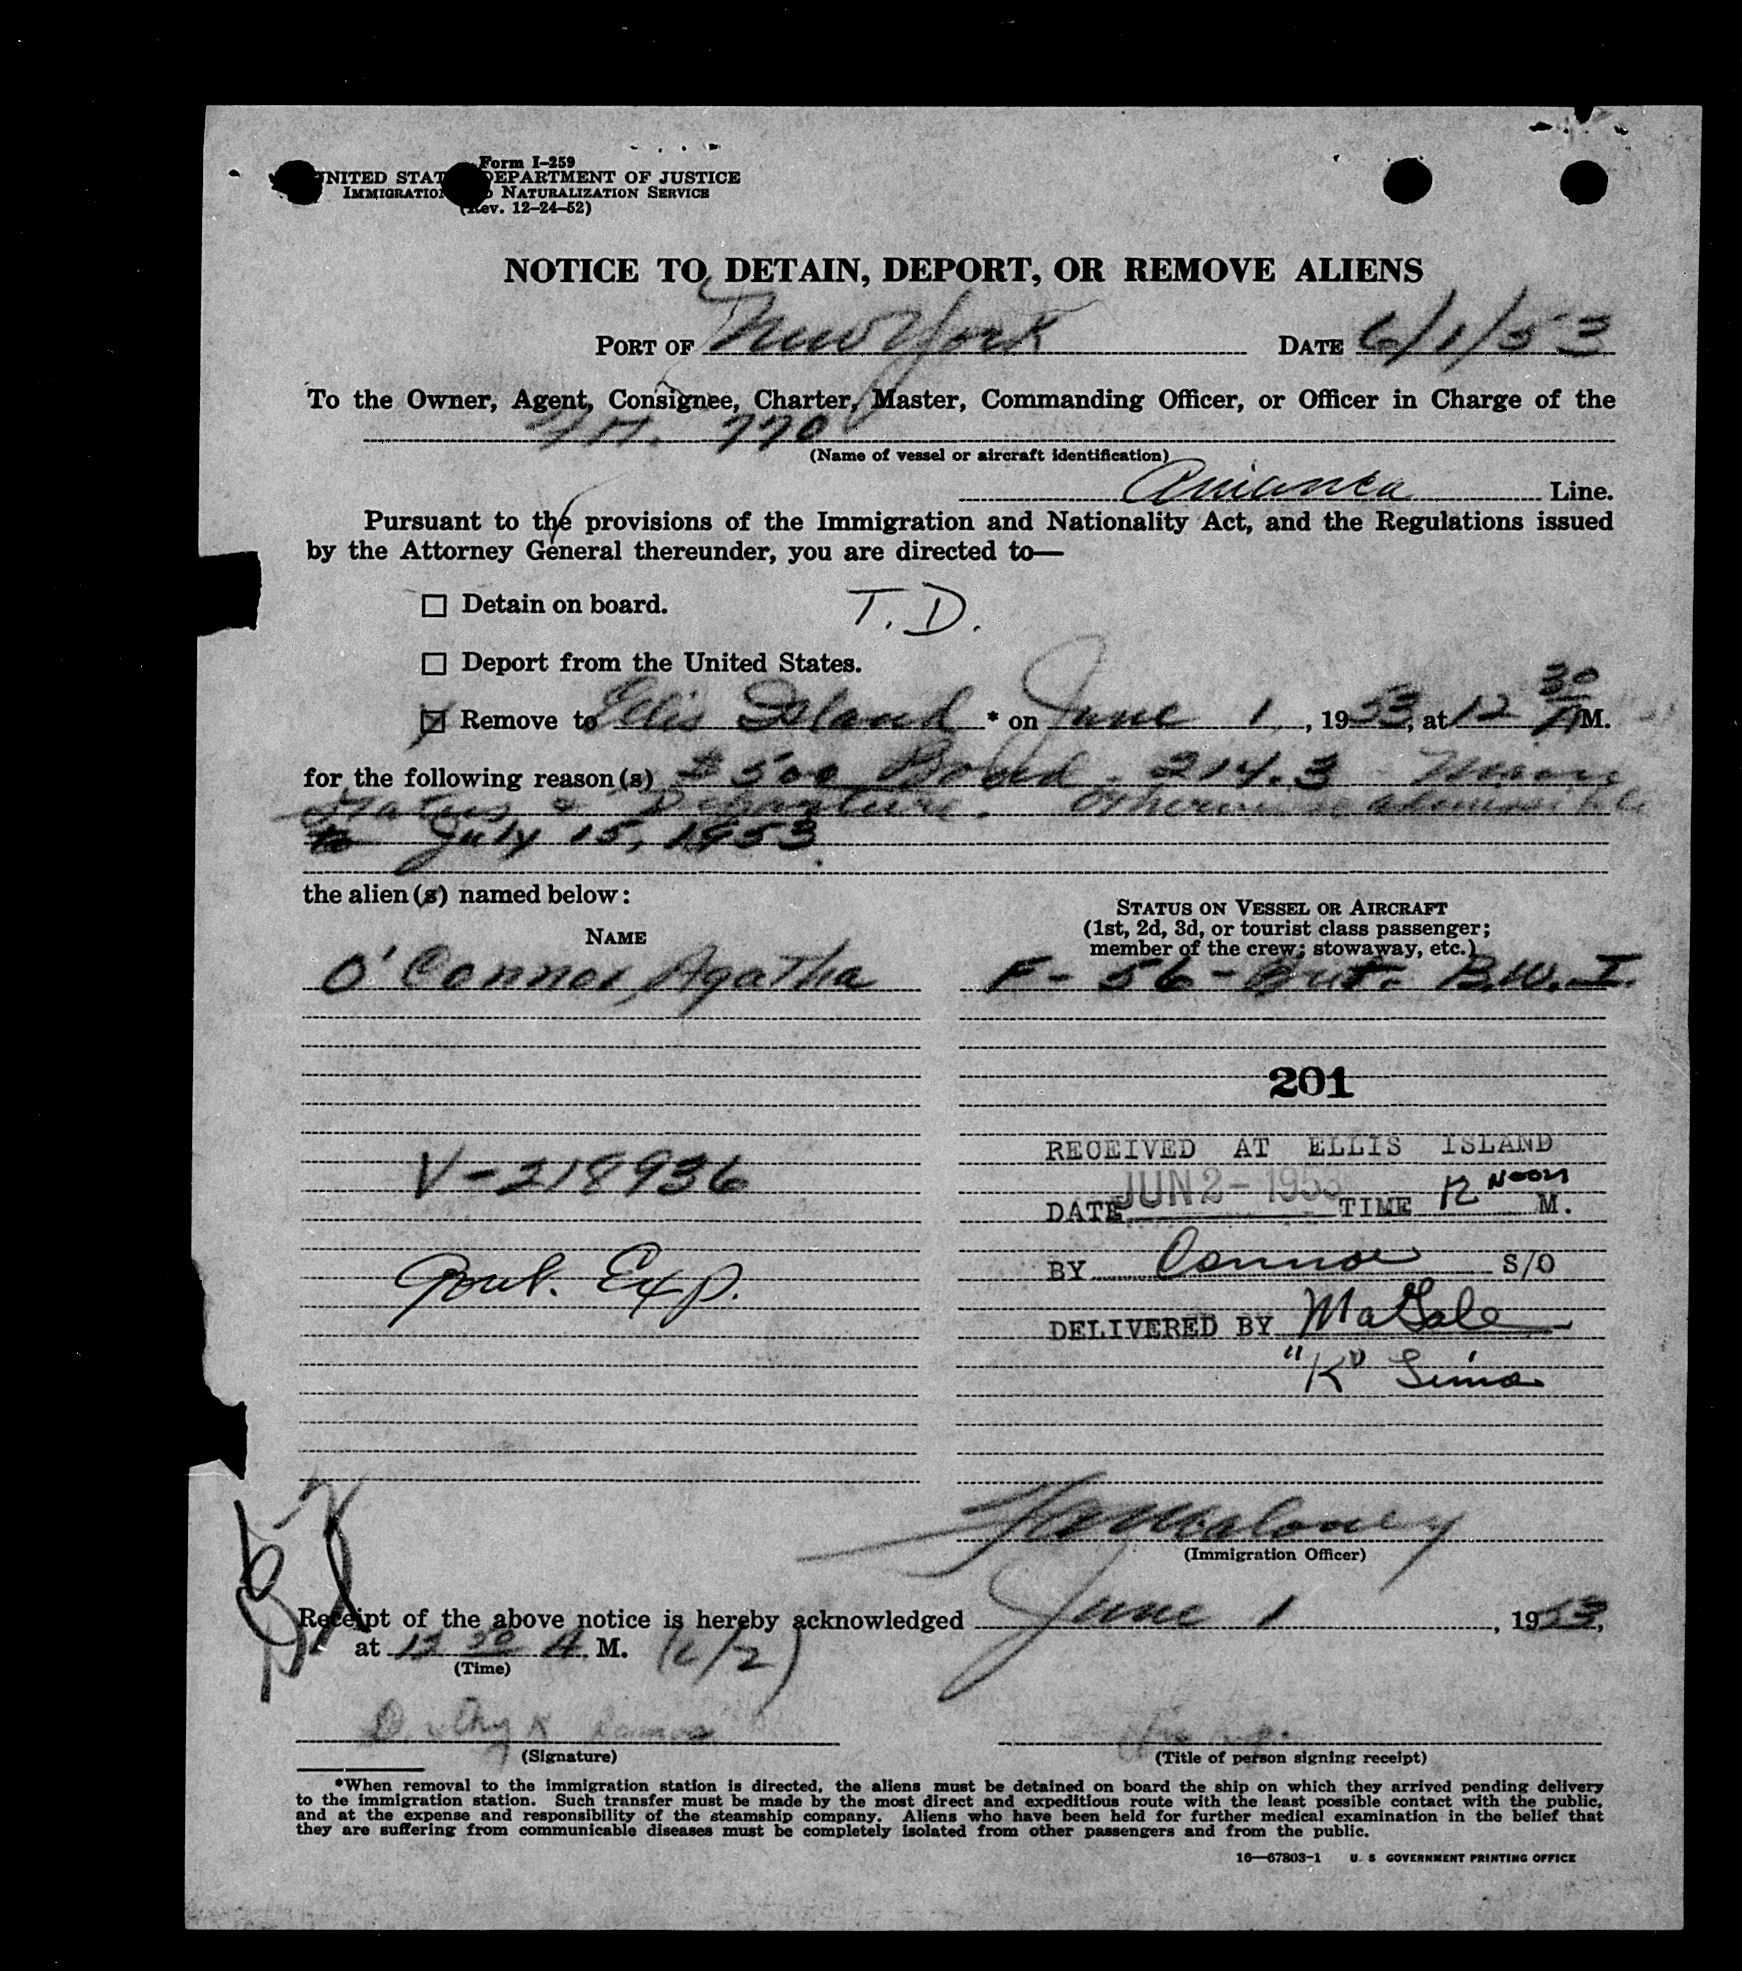 Form I-259
UNITED STAT DEPARTMENT OF JUSTICE
IMMIGRATION NATURALIZATION SERVICE
(Rev. 12-24-52)
NOTICE TO DETAIN, DEPORT, OR REMOVE ALIENS
PORT OF New York DATE 6/1/53
To the Owner, Agent, Consignee, Charter, Master, Commanding Officer, or Officer in Charge of the
770
(Name of vessel or aircraft identification)
Avianca Line.
Pursuant to the provisions of the Immigration and Nationality Act, and the Regulations issued
by the Attorney General thereunder, you are directed to—
☐ Detain on board. T.D.
☐ Deport from the United States.
☒ Remove to Ellis Island * on June 1, 1953, at 12 30 A M.
for the following reason(s) $500 Bond - 214.3
Status & Departure. Otherwise admissible
to July 15, 1953
the alien(s) named below:
STATUS ON VESSEL OR AIRCRAFT
(1st, 2d, 3d, or tourist class passenger;
member of the crew; stowaway, etc.)
NAME
O'Connor, Agatha F-56-Brit. B.W.I.
201
RECEIVED AT ELLIS ISLAND
V-218936
DATE JUN 2-1953 TIME 12 Noon M.
BY Connor S/O
Govt. Exp.
DELIVERED BY
"K"
Maloney
(Immigration Officer)
Receipt of the above notice is hereby acknowledged June 1, 1953,
at 12 30 A M. (6/2)
(Time)
(Signature) (Title of person signing receipt)
*When removal to the immigration station is directed, the aliens must be detained on board the ship on which they arrived pending delivery
to the immigration station. Such transfer must be made by the most direct and expeditious route with the least possible contact with the public,
and at the expense and responsibility of the steamship company. Aliens who have been held for further medical examination in the belief that
they are suffering from communicable diseases must be completely isolated from other passengers and from the public.
16—67803-1 U. S GOVERNMENT PRINTING OFFICE